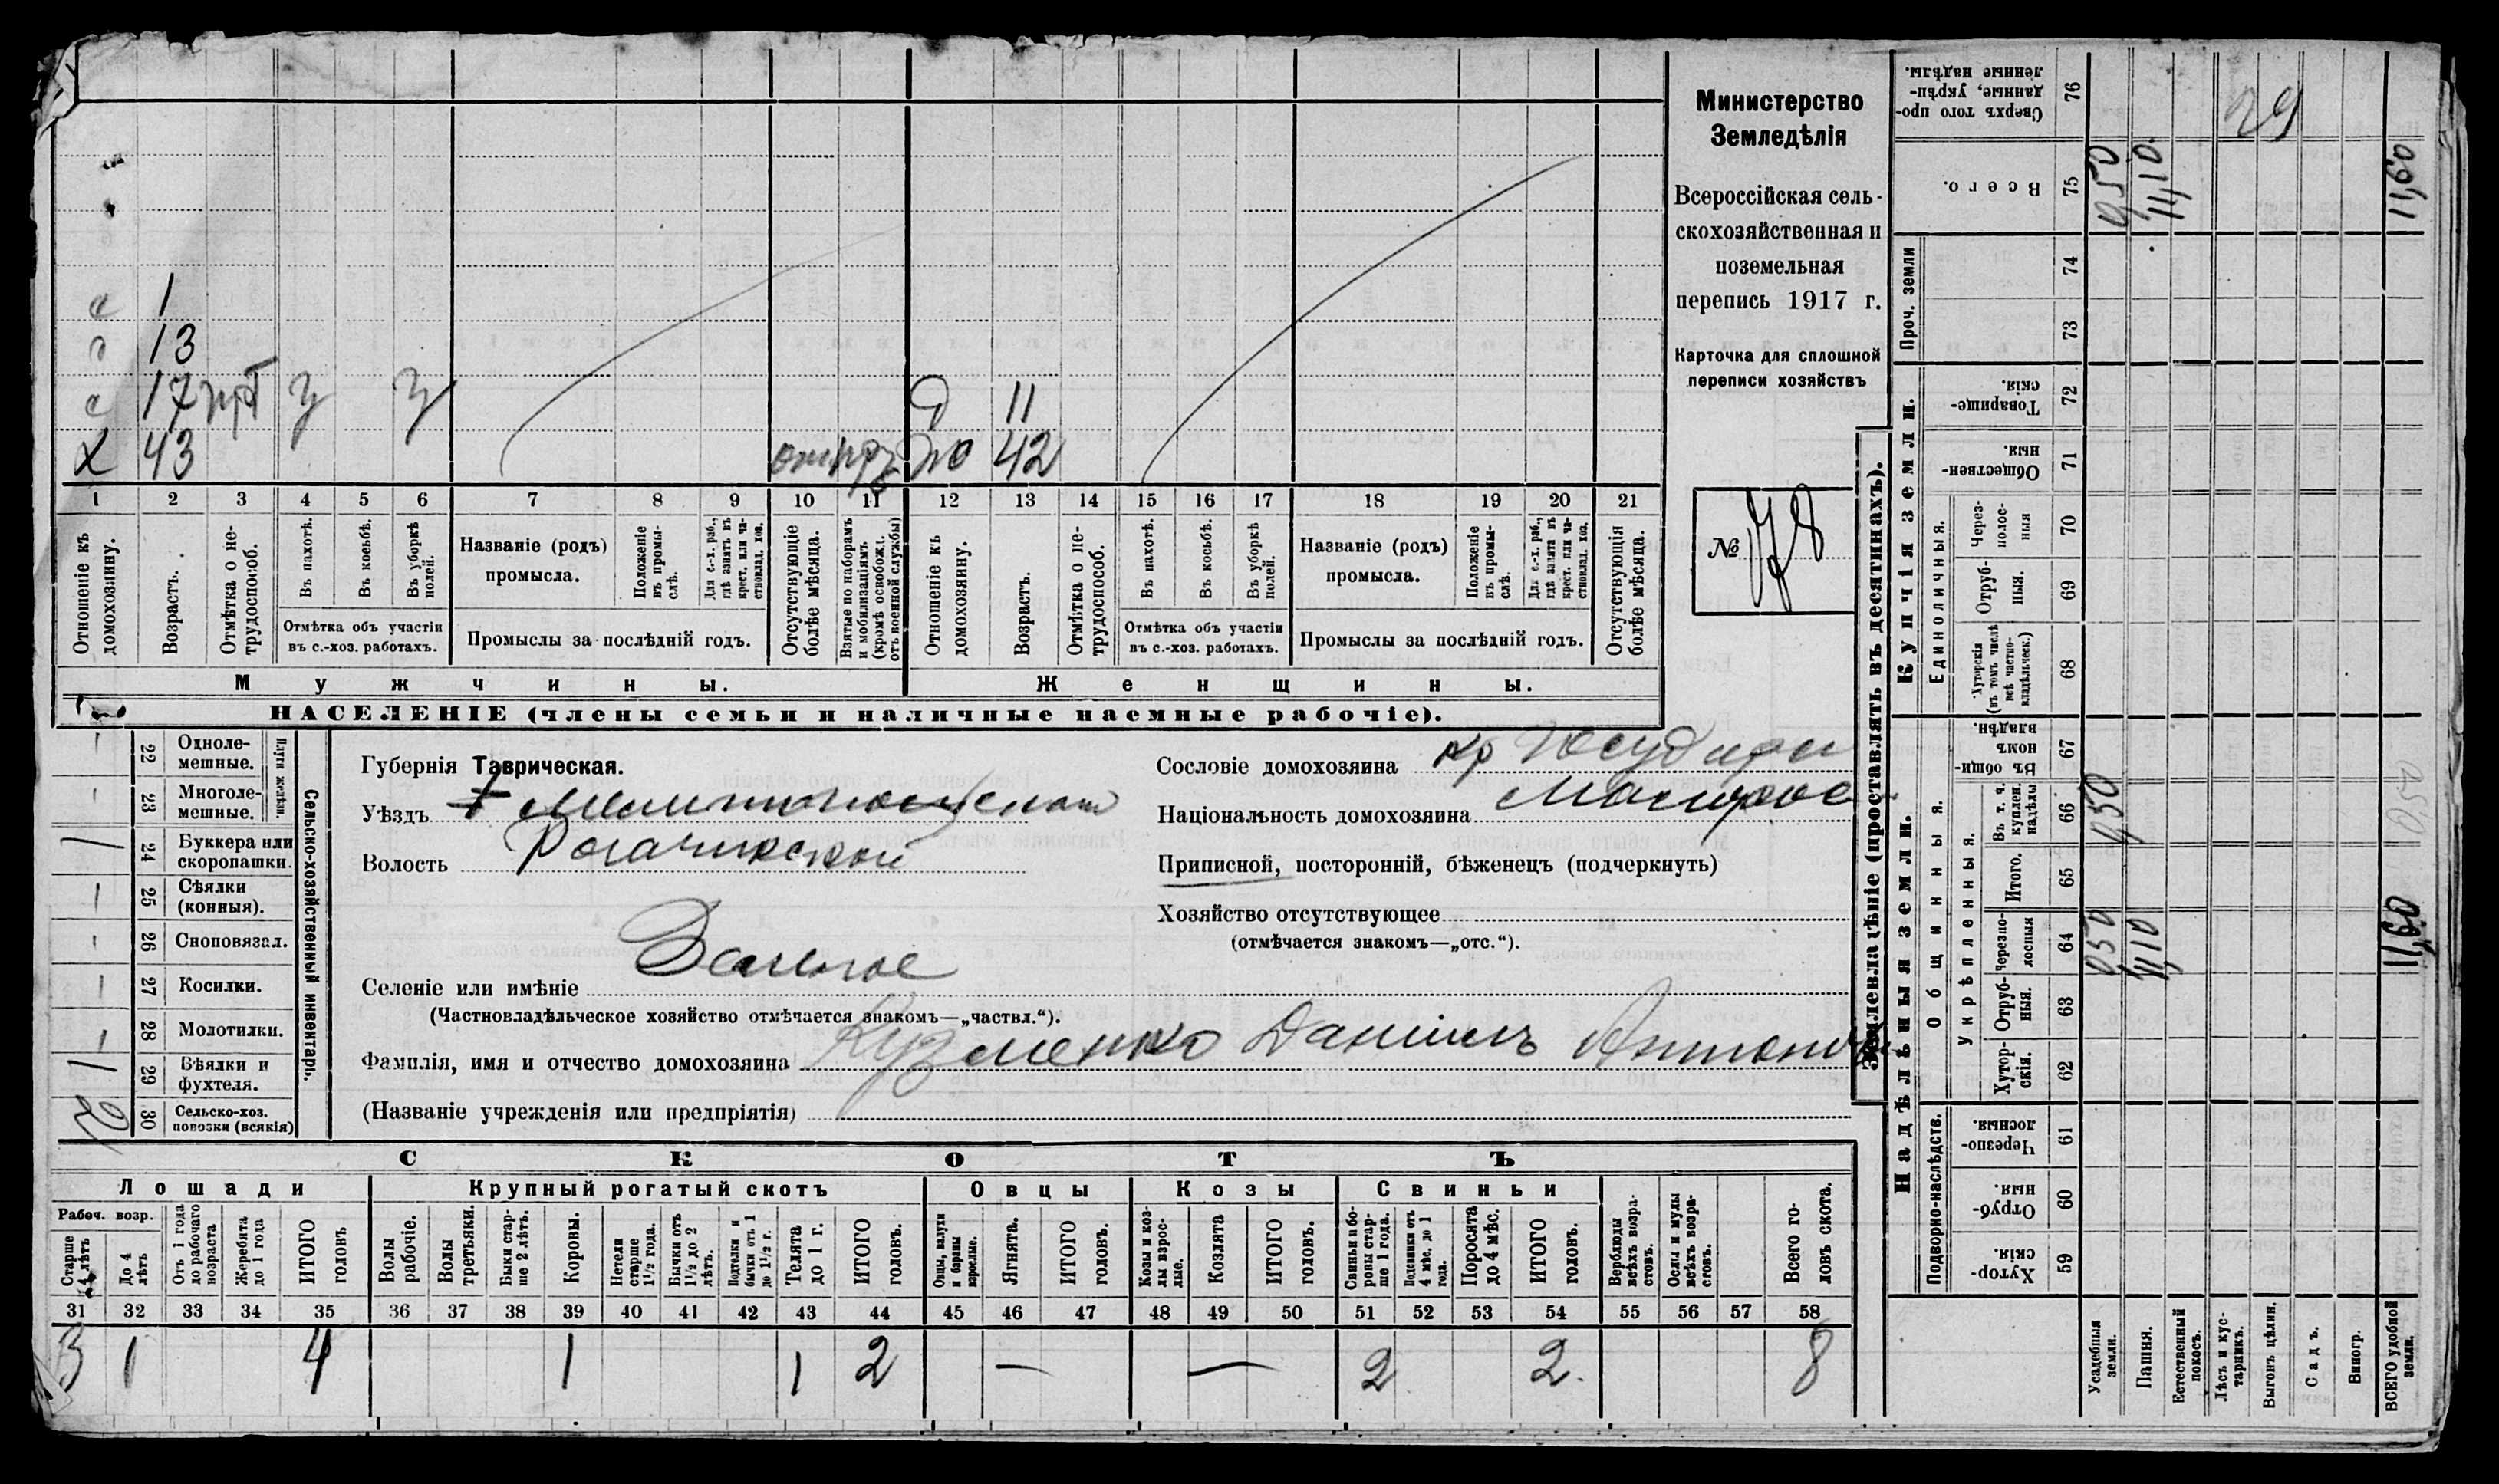 с 1
с 13
с 17 прб з з
Х 43
Д 11
ж 42
1 2 3 4 5 6 7 8 9 10 11 12 13 14 15 16 17 18 19 20 21
Отношеніе къ домохозяину.
Возрастъ.
Отмѣтка о не-
трудоспособ.
Въ пахотѣ.
Въ косьбѣ.
Въ уборкѣ полей.
Отмѣтка объ участіи
въ с.-хоз. работахъ.
Названіе (родъ)
промысла.
Положеніе въ промы-
слѣ.
Для с.-х. раб.,
гдѣ занятъ въ
крест. или ча-
стновлад. хоз.
Промыслы за послѣдній годъ.
Отсутствующіе
болѣе мѣсяца.
Взятые по наборамъ
и мобилизаціямъ
(кромѣ освобожд.
отъ военной службы)
Отношеніе къ
домохозяину.
Возрастъ.
Отмѣтка о не-
трудоспособ.
Въ пахотѣ.
Въ косьбѣ.
Въ уборкѣ
полей.
Отмѣтка объ участіи
въ с.-хоз. работахъ.
Названіе (родъ)
промысла.
Положеніе
въ промы-
слѣ.
Для с.-х. раб.,
гдѣ занята въ
крест. или ча-
стновлад. хоз.
Промыслы за послѣдній годъ.
Отсутствующія
болѣе мѣсяца.
Мужчины.
Женщины.
НАСЕЛЕНІЕ (члены семьи и наличные наемные рабочіе).
Министерство
Земледѣлія
Всероссійская сель-
скохозяйственная и
поземельная
перепись 1917 г.
Карточка для сплошной
переписи хозяйствъ
№ 78
Сельско-хозяйственный инвентарь.
Плуги желѣзн.
22 Одноле-
мешные.
23 Многоле-
мешные.
24 Буккера или
скоропашки. 1
25 Сѣялки
(конныя).
26 Сноповязал.
27 Косилки.
28 Молотилки.
29 Вѣялки и
фухтеля. 1
30 Сельско-хоз.
повозки (всякія)
Губернія Таврическая.
Уѣздъ Мелитопольскій
Волость Рогачикской
Селеніе или имѣніе
(Частновладѣльческое хозяйство отмѣчается знакомъ—„частвл.“).
Фамилія, имя и отчество домохозяина Кузменко Даніилъ Антонов
(Названіе учрежденія или предпріятія)
Сословіе домохозяина кр
Національность домохозяина Малорос
Приписной, посторонній, бѣженецъ (подчеркнуть)
Хозяйство отсутствующее
(отмѣчается знакомъ—„отс.“).
СКОТЪ
Лошади
Рабоч. возр.
Старше
4 лѣтъ
До 4
лѣтъ
Отъ 1 года
до рабочаго
возраста
Жеребята
до 1 года
ИТОГО
головъ
Крупный рогатый скотъ
Волы
рабочіе.
Волы
третьяки.
Быки стар-
ше 2 лѣтъ.
Коровы.
Нетели
старше
1½ года.
Бычки отъ
1½ до 2
лѣтъ.
Подтелки и
бычки отъ 1
до 1½ г.
Телята
до 1 г.
ИТОГО
головъ.
Овцы
Овцы, валухи
и бараны
взрослые.
Ягнята.
ИТОГО
головъ.
Козы
Козы и коз-
лы взрос-
лые.
Козлята
ИТОГО
головъ.
Свиньи
Свиньи и бо-
ровы стар-
ше 1 года.
Подсвинки отъ
4 мѣс. до 1
года.
Поросята
до 4 мѣс.
ИТОГО
головъ.
Верблюды
всѣхъ возра-
стовъ.
Ослы и мулы
всѣхъ возра-
стовъ.
Всего го-
ловъ скота.
31 32 33 34 35 36 37 38 39 40 41 42 43 44 45 46 47 48 49 50 51 52 53 54 55 56 57 58
3 1 4 1 1 2 — — 2 2 8
Землевладѣніе (проставлять въ десятинахъ).
Надѣльныя земли.
Купчія земли.
Проч. земли
Подворно-наслѣдств.
Общинныя.
Укрѣпленныя.
Единоличныя.
59 Хутор-
скія.
60 Отруб-
ныя.
61 Черезпо-
лосныя.
62 Хутор-
скія.
63 Отруб-
ныя.
64 Черезпо-
лосныя
65 Итого.
66 Въ т. ч.
куплен.
надѣлы
67 Въ общи-
номъ
владѣн.
68 Хуторскія
(въ томъ числѣ
всѣ частно-
владѣльческ.)
69 Отруб-
ныя.
70 Через-
полос-
ныя
71 Обществен-
ныя.
72 Товарище-
скія.
73
74
75 Всего.
76 Сверхъ того про-
данные, укрѣп-
ленные надѣлы.
Усадебныя
земли. 0,50 0,50 0,50
Пашня. 11,10 11,10
Естественный
покосъ.
Лѣсъ и кус-
тарникъ.
Выгонъ цѣлин.
Садъ.
Виногр.
ВСЕГО удобной
земли. 11,60 0,50 11,60
29